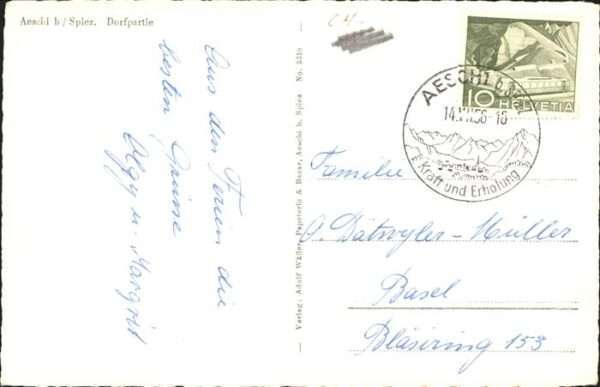 Aeschi b/Spiez. Dorfpartie
Aus den Ferien die
besten Grüsse
Olgy u. Margrit
Verlag: Adolf Wäfler, Papeterie & Bazar, Aeschi b. Spiez No. 
C4.-
10 HELVETIA
AESCHI b. Spiez
14.VII.56-18
Kraft und Erholung
Familie
Dätwyler-Müller
Basel
Bläsiring 153